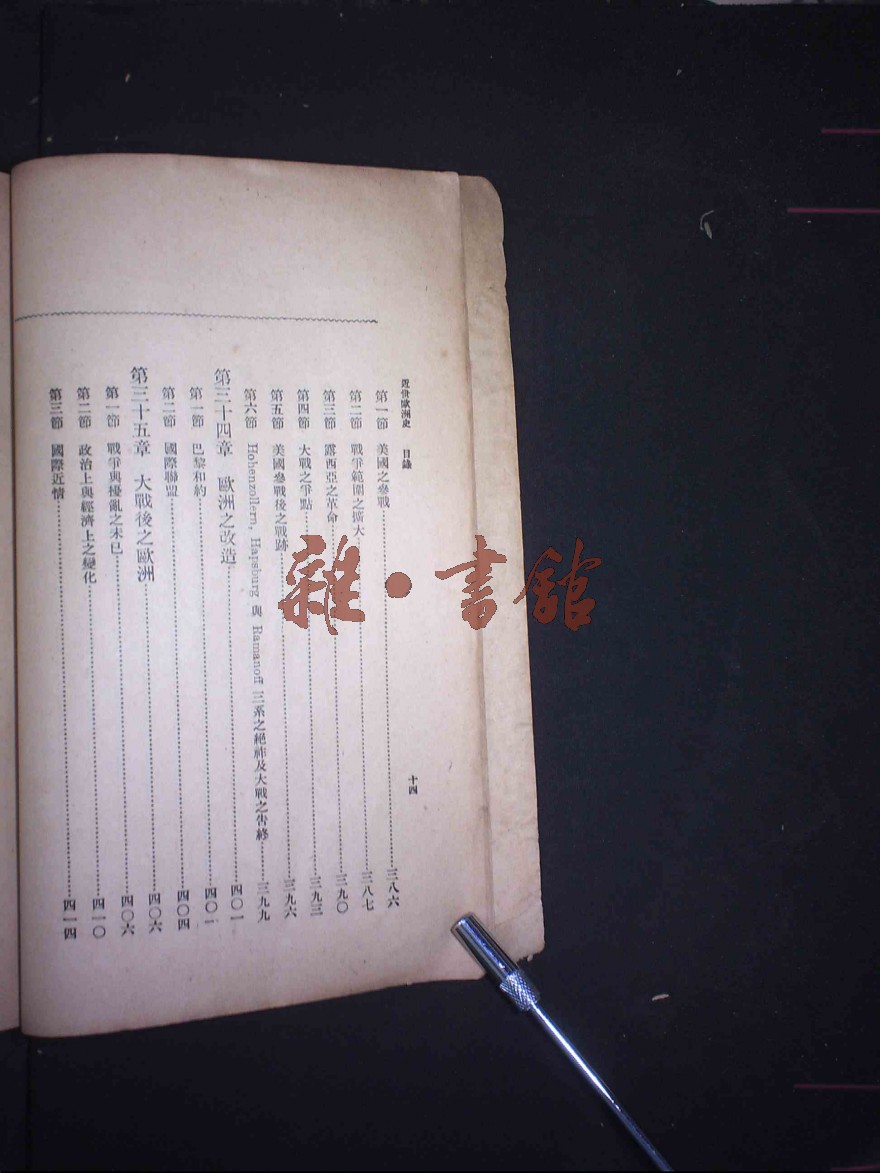 近世歐洲史 目錄 十四
第一節 美國之參戰 三八六
第二節 戰爭範圍之擴大 三八七
第三節 露西亞之革命 三九〇
第四節 大戰之爭點 三九三
第五節 美國參戰後之戰跡 三九六
第六節 Hohenzollern, Hapsburg 與 Ramanoff 三系之絕祚及大戰之告終 三九九
第三十四章 歐洲之改造 四〇一
第一節 巴黎和約 四〇一
第二節 國際聯盟 四〇四
第三十五章 大戰後之歐洲 四〇六
第一節 戰爭與擾亂之未已 四〇六
第二節 政治上與經濟上之變化 四一〇
第三節 國際近情 四一四
雜·書館